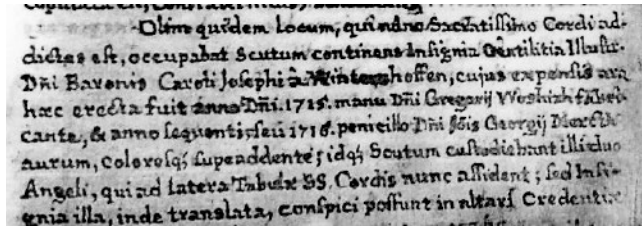 Olim quidem locum, qui nunc Sacratissimo Cordi ad-
dictus est, occupabat Scutum continens Insignia Gentilitia Illustr.
Dñi Baronis Caroli Josephi à Wintershoffen, cujus expensis ara
hæc erecta fuit anno Dñi. 1715. manu Dñi Gregorij fabri-
cante, & anno sequenti, seu 1716. penicillo Dñi Jõis Georgij
aurum, coloresq; supeaddente; idq; Scutum custodiebant illi duo
Angeli, qui ad latera Tabulæ SS. Cordis nunc assident; sed Insi-
gnia illa, inde translata, conspici possunt in altaris Credentiæ